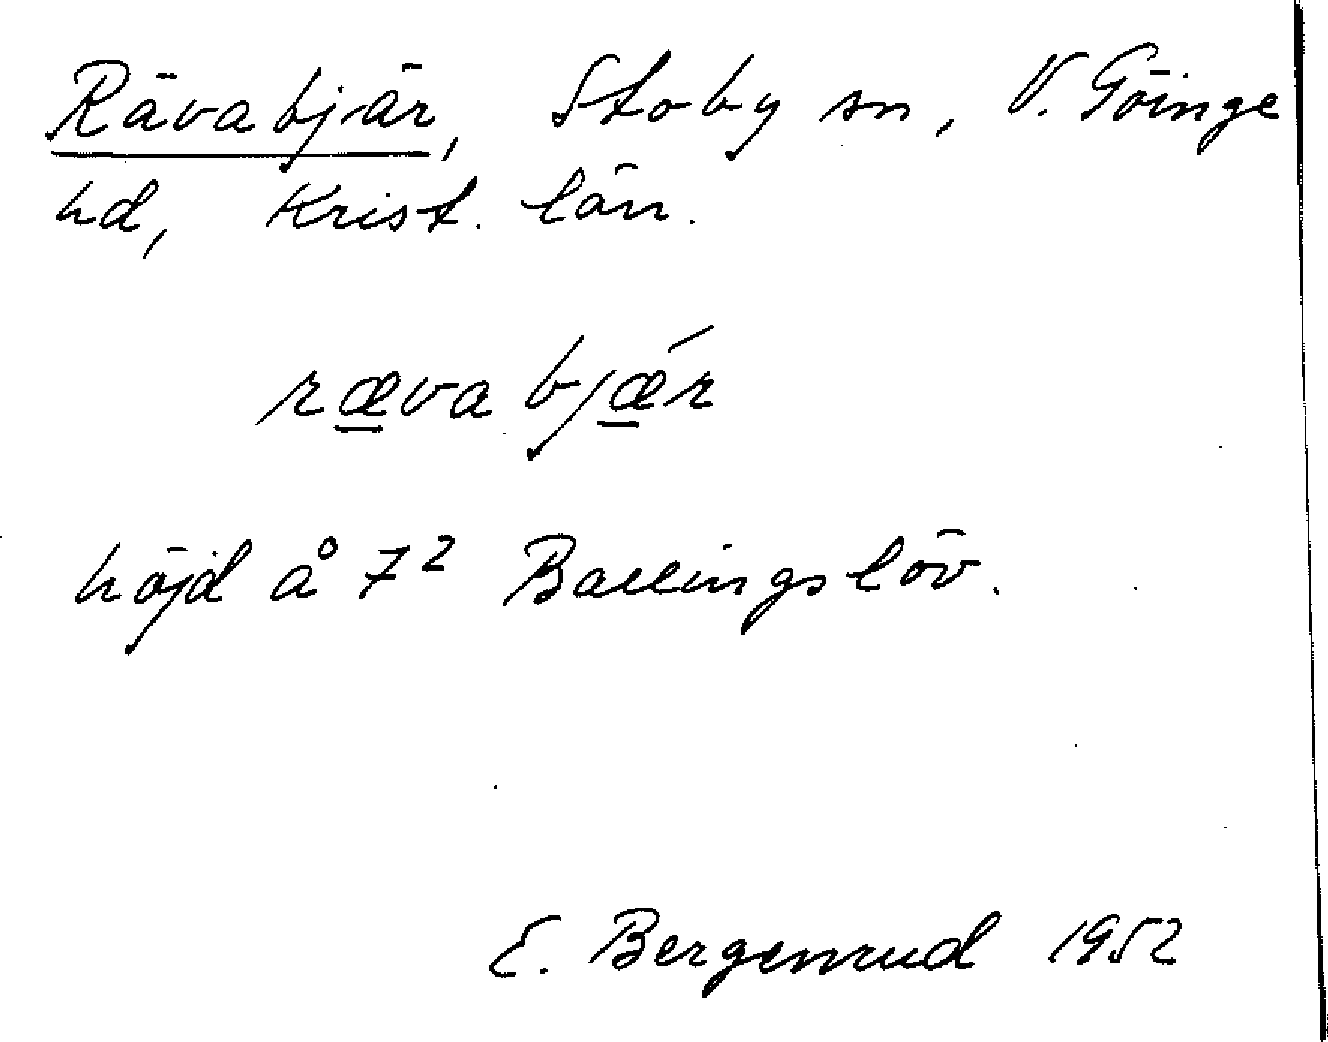 Rävabjär, Stoby sn, V. Göinge
hd, Krist. län.
ræva bjǽr
höjd å 7² Ballingslöv.
E. Bergenrud 1952